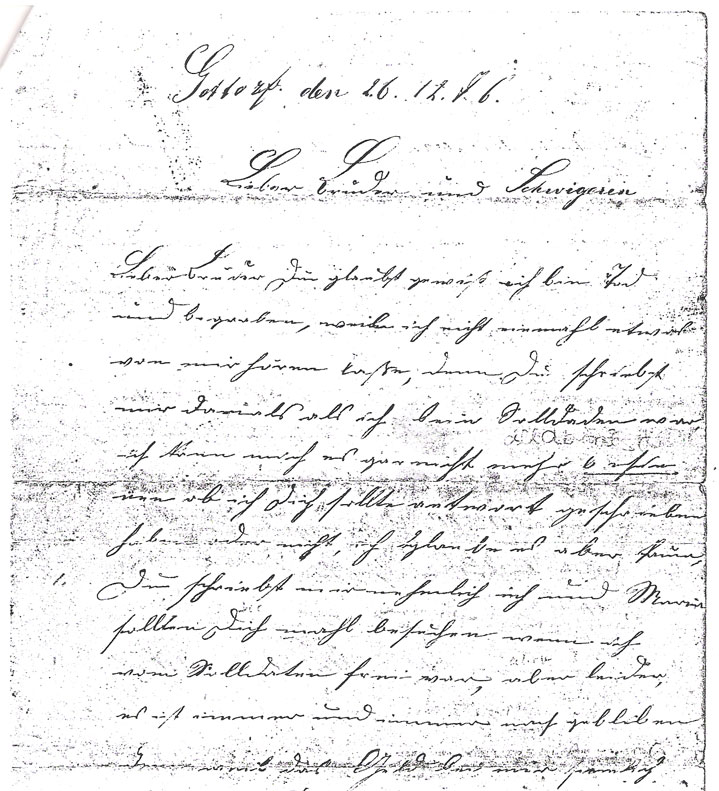 Gottorf den 26. 12. 76.
Lieber Bruder und Schwigeren
Lieber Bruder Du glaubst gewiß ich bin Tod
und begraben, weil ich nicht einmahl etwas
von mir hören laße, denn Du schriebst
mir damals als ich bein Solldaden war
ich kann mich es gar nicht mehr
nen ob ich Dich sollte antwort geschrieben
haben oder nicht, ich glaube es aber kaum,
Du schriebst mir nehmlich ich und Maria
sollten Dich mahl besuchen wenn ich
vom Solldaten frei war, aber leider,
es ist immer und immer nach gebliben
weil das Geld bei mir